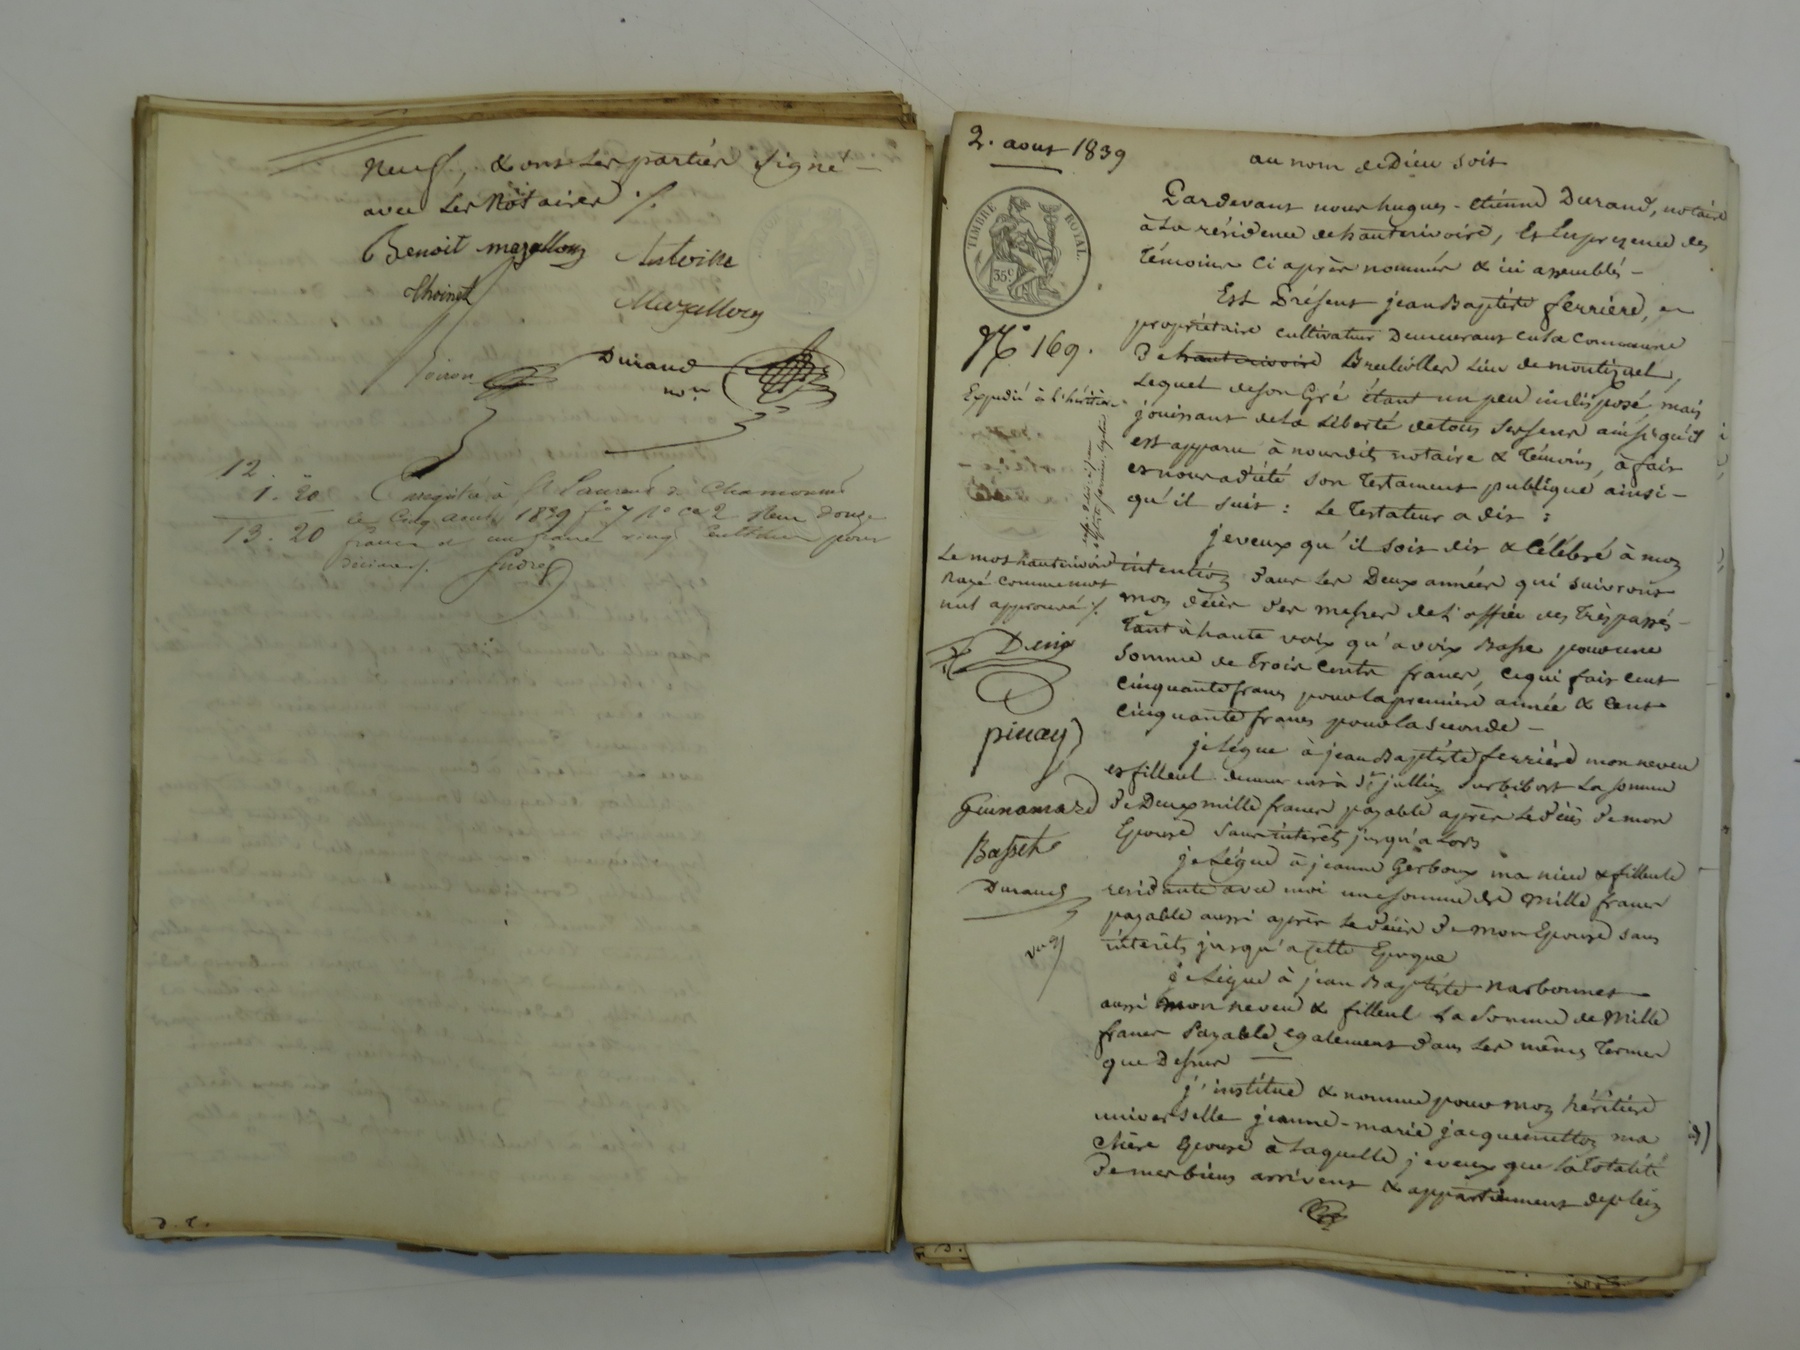 neuf, & ont les parties signé
avec les Notaires ./.
Benoit mazallon Antoine
thoinet Mazallon
Poiron Durand
nore
12. "
1. 20
13. 20
Enregistré à St Laurent de Chamousset
le cinq aout 1839 fo 7 Ro ce 2 Reçu douze
francs et un franc vingt centimes pour
décimes ./.
2. aout 1839
au nom de Dieu soit
TIMBRE ROYAL
35c
No 169.
Expedié à l'héritière
Pardevant nous hugues-étienne Durand, notaire
à la résidence de hauterivoire, Et En presence des
témoins ci après nommés & ici assemblés -
Est Présent jean Baptiste ferrière,
propriétaire cultivateur Demeurant en la commune
de hauterivoire Brulliolles Lieu de montiquet,
Lequel de son Gré étant un peu indisposé, mais
jouissant de la Liberté de tous ses sens ainsi qu'il
est apparu à nous dits notaire & témoins, a fait
et nous a dicté son testament publique ainsi -
qu'il suit : Le Testateur a dit :
je veux qu'il soit dit & célébré à mon
intention dans les Deux années qui suivront
mon décès des messes de l'office des trépassés -
tant à haute voix qu'a voix Basse pour une
somme de trois cents francs, ce qui fait cent
cinquante francs pour la première année & cent
cinquante francs pour la seconde -
Le mot hauterivoire
Rayé comme mot
nul approuvé ./.
Denis
pinay
Guinamard
Basset
Durand
je Légue à jean Baptiste ferrière mon neveu
et filleul demeurant à St jullien sur bibost La somme
de Deux mille francs payable après le décès de mon
Epouse sans intérêts jusqu'a Lors
je Légue à jeanne Gerboux ma niece & filleule
residante avec moi une somme de mille francs
payable aussi après le décès de mon Epouse sans
intérêts jusqu'a cette Epoque
je Légue à jean Baptiste narbonnet
aussi mon neveu & filleul La Somme de Mille
francs Payable egalement dans les mêmes termes
que Dessus
j'institue & nomme pour mon héritière
universelle jeanne-marie jacquemetton ma
chère Epouse à Laquelle je veux que la totalité
de mes biens arrivent & appartiennent de plein